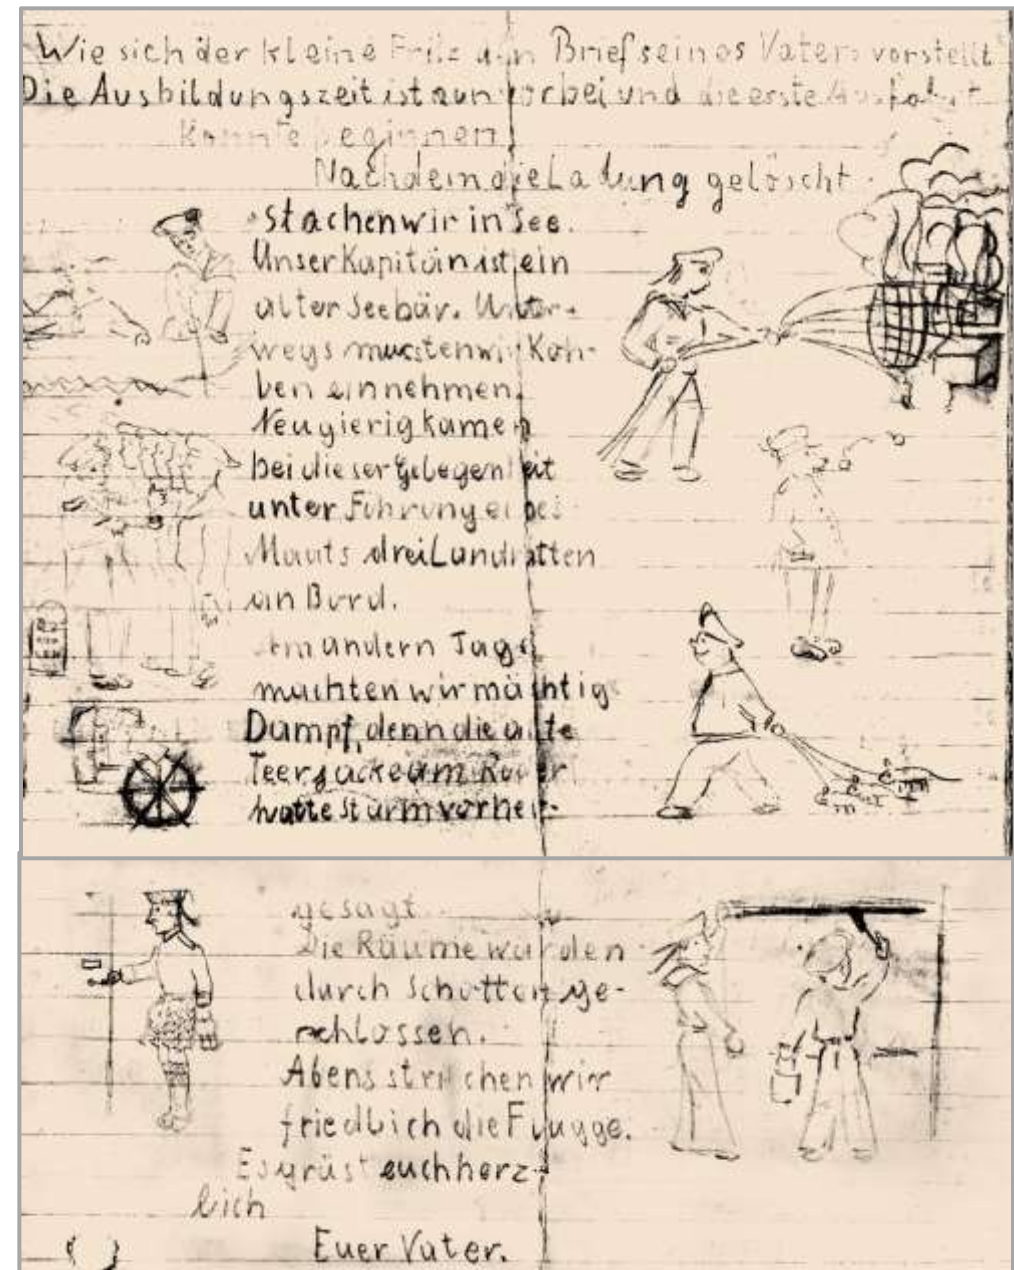 Wie sich der kleine Fritz den Brief seines Vaters vorstellt
Die Ausbildungszeit ist nun vorbei und die erste Ausfahrt
konnte beginnen
Nachdem die Ladung gelöscht
stachen wir in See.
Unser Kapitän ist ein
alter Seebär. Unter-
wegs mussten wir Koh-
len einnehmen.
Neugierig kamen
bei dieser Gelegenheit
unter Führung eines
Maats drei Landratten
an Bord.
Am andern Tage
machten wir mächtig
Dampf, denn die alte
Teerjacke am Ruder
hatte Sturm vorher-
gesagt.
Die Räume wurden
durch Schotten ge-
schlossen.
Abens strichen wir
friedlich die Flagge.
Es grüst euch herz-
lich
Euer Vater.